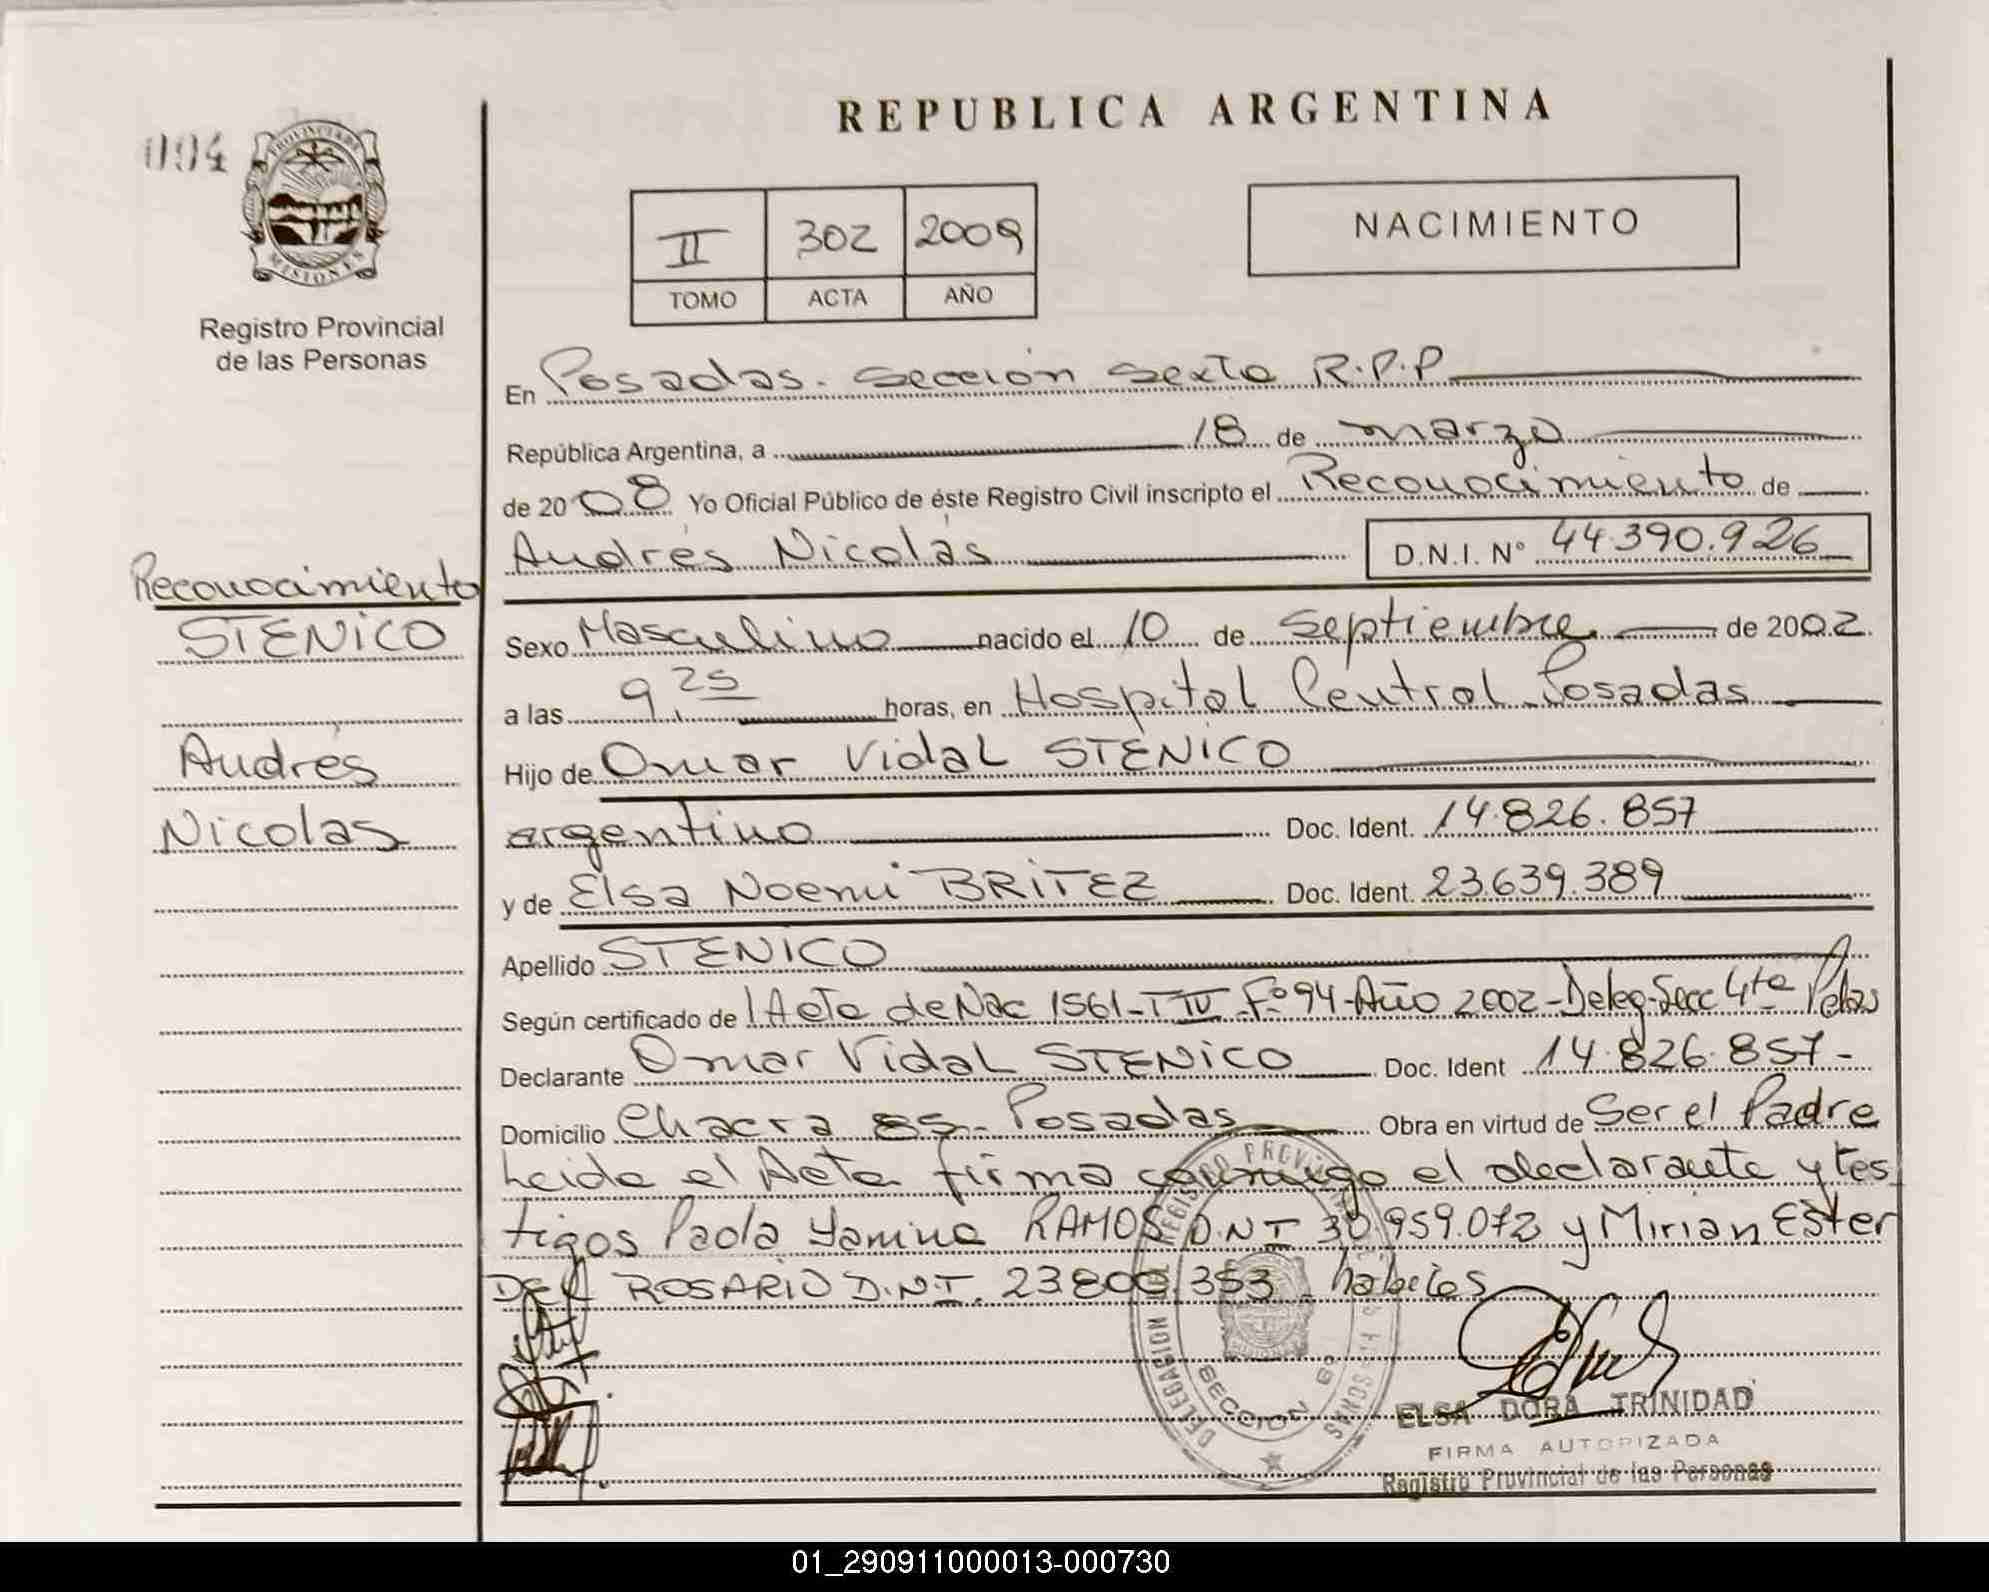 REPUBLICA ARGENTINA
094
PROVINCIA DE
MISIONES
Registro Provincial
de las Personas
II 302 2009
TOMO ACTA AÑO
NACIMIENTO
En Posadas. Sección Sexta R.P.P
República Argentina, a 18 de marzo
de 2008 Yo Oficial Público de éste Registro Civil inscripto el Reconocimiento de
Andrés Nicolás D.N.I. N° 44.390.926
Reconocimiento
STENICO
Andrés
Nicolas
Sexo Masculino nacido el 10 de Septiembre de 2002.
a las 9,25 horas, en Hospital Central Posadas
Hijo de Omar Vidal STENICO
argentino Doc. Ident. 14.826.857
y de Elsa Noemi BRITEZ Doc. Ident. 23.639.389
Apellido STENICO
Según certificado de 1 Acta de Nac 1561-T IV-F° 94-Año 2002-Deleg-Secc 4ta Pdas
Declarante Omar Vidal STENICO Doc. Ident 14.826.857-
Domicilio Chacra 85- Posadas Obra en virtud de Ser el Padre
Leida el Acta firma conmigo el declarante y tes
tigos Paola Yamina RAMOS D.N.I 30.959.072 y Mirian Ester
DEL ROSARIO D.N.I. 23.800.353 habiles
DELEGACION DEL REGISTRO PROVINCIAL DE LAS PERSONAS
SECCION 6°
ELSA DORA TRINIDAD
FIRMA AUTORIZADA
Registro Provincial de las Personas
01_290911000013-000730